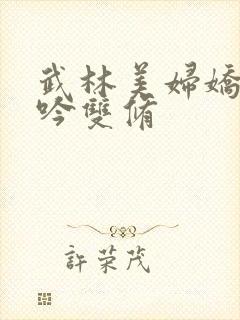 武林美婦嬌
吟雙脩
許荣茂